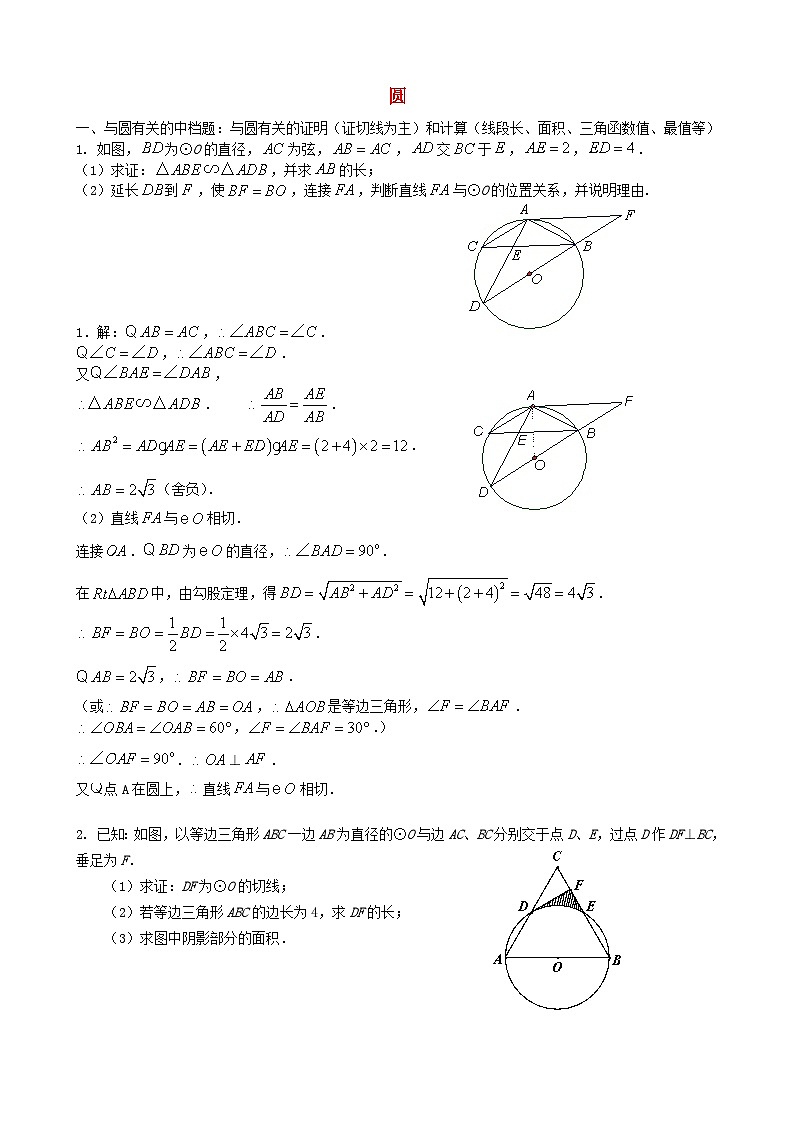 圆
一、与圆有关的中档题：与圆有关的证明（证切线为主）和计算（线段长、面积、三角函数值、最值等）
1. 如图，BD为⊙O的直径，AC为弦，AB＝AC，AD交BC于E，AE＝2，ED＝4．
（1）求证：△ABE∽△ADB，并求AB的长；
（2）延长DB到F，使BF＝BO，连接FA，判断直线FA与⊙O的位置关系，并说明理由．
A
F
C
E
B
O
D
1．解：Q AB＝AC，∴∠ABC＝∠C．
Q∠C＝∠D，∴∠ABC＝∠D．
又Q∠BAE＝∠DAB，
∴△ABE∽△ADB． ∴AB/AD＝AE/AB．
∴AB²＝ADgAE＝(AE+ED)gAE＝(2+4)×2＝12．
∴AB＝2√3（舍负）．
（2）直线FA与e O相切．
A
F
C
E
B
O
D
连接OA．Q BD为e O的直径，∴∠BAD＝90°．
在Rt△ABD中，由勾股定理，得BD＝√(AB²+AD²)＝√(12+(2+4)²)＝√48＝4√3．
∴BF＝BO＝1/2BD＝1/2×4√3＝2√3．
Q AB＝2√3，∴BF＝BO＝AB．
（或∴BF＝BO＝AB＝OA，∴△AOB是等边三角形，∠F＝∠BAF．
∴∠OBA＝∠OAB＝60°，∠F＝∠BAF＝30°．）
∴∠OAF＝90°．∴OA⊥AF．
又Q点A在圆上，∴直线FA与e O相切．
2. 已知：如图，以等边三角形ABC一边AB为直径的⊙O与边AC、BC分别交于点D、E，过点D作DF⊥BC，
垂足为F．
（1）求证：DF为⊙O的切线；
（2）若等边三角形ABC的边长为4，求DF的长；
（3）求图中阴影部分的面积．
C
F
D
E
A
O
B